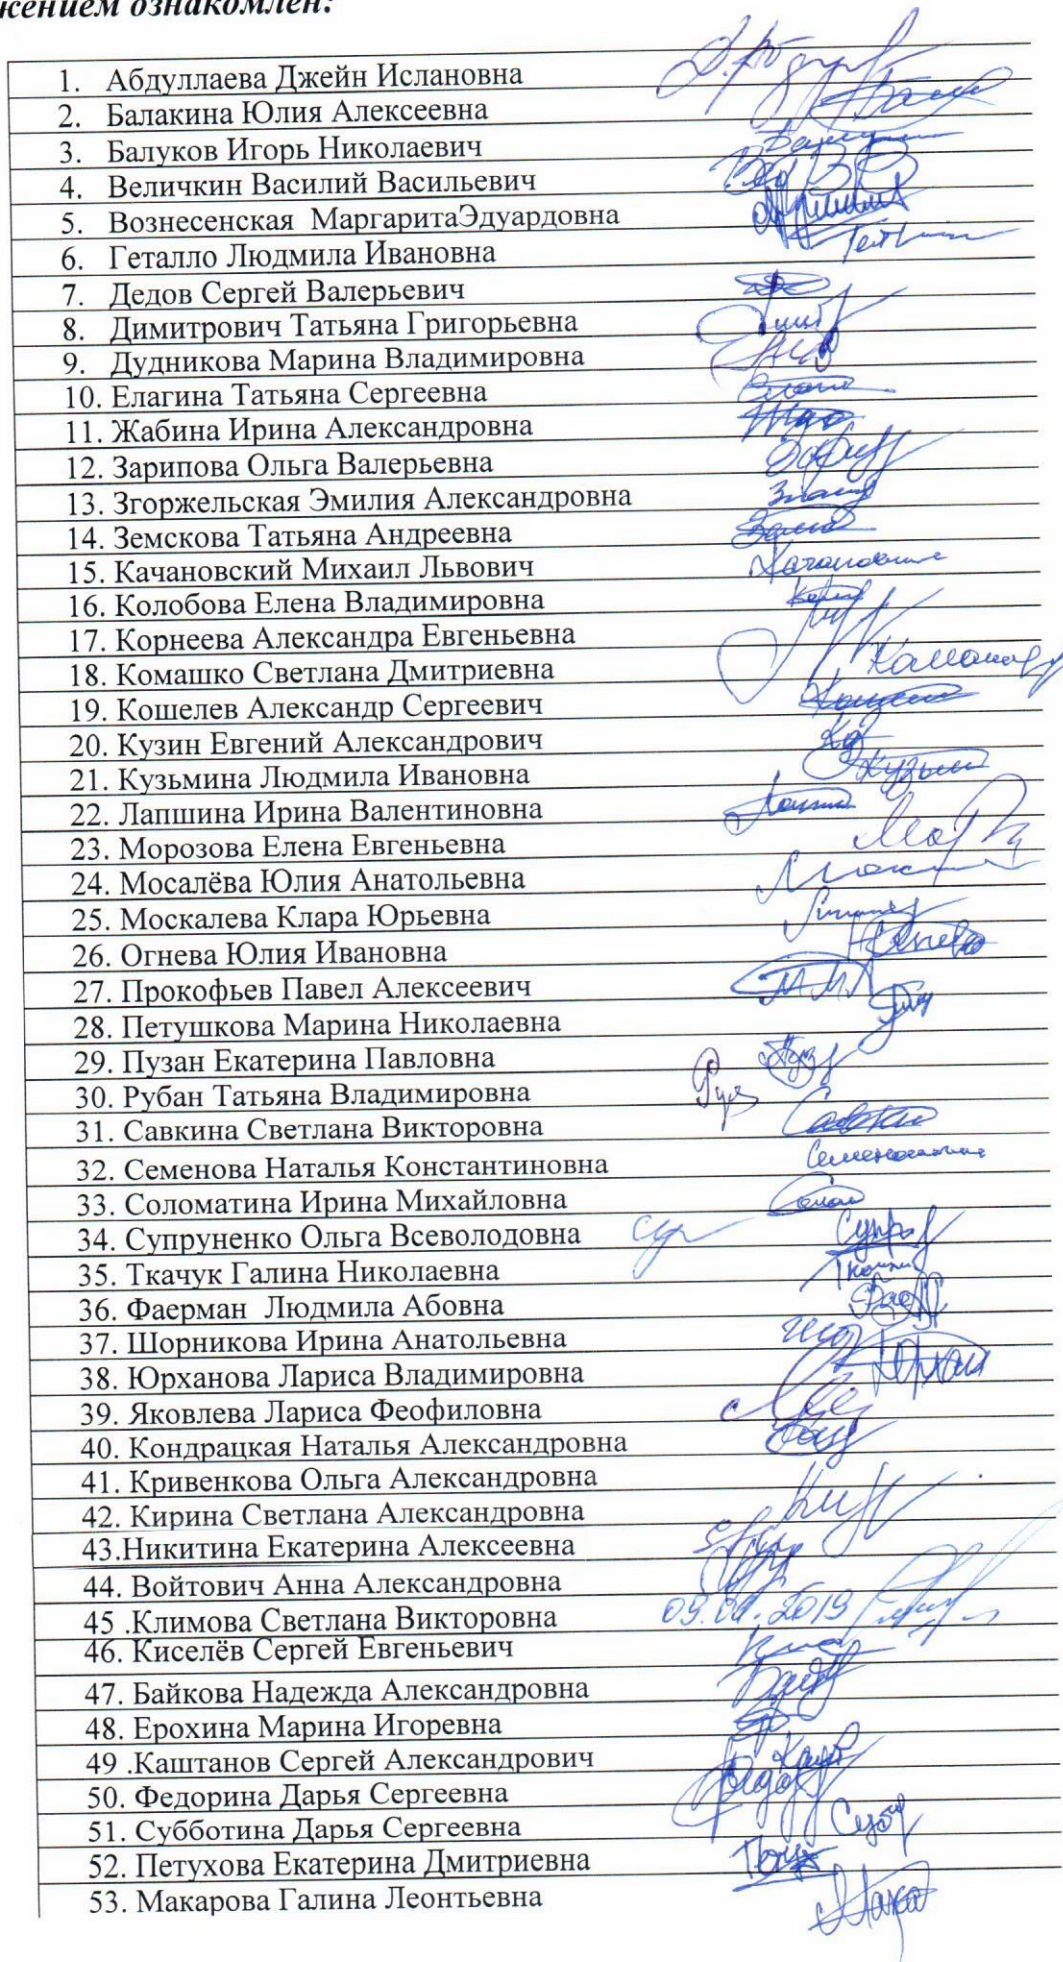 жением ознакомлен:
1. Абдуллаева Джейн Ислановна
2. Балакина Юлия Алексеевна
3. Балуков Игорь Николаевич
4. Величкин Василий Васильевич
5. Вознесенская МаргаритаЭдуардовна
6. Геталло Людмила Ивановна
7. Дедов Сергей Валерьевич
8. Димитрович Татьяна Григорьевна
9. Дудникова Марина Владимировна
10. Елагина Татьяна Сергеевна
11. Жабина Ирина Александровна
12. Зарипова Ольга Валерьевна
13. Згоржельская Эмилия Александровна
14. Земскова Татьяна Андреевна
15. Качановский Михаил Львович
16. Колобова Елена Владимировна
17. Корнеева Александра Евгеньевна
18. Комашко Светлана Дмитриевна
19. Кошелев Александр Сергеевич
20. Кузин Евгений Александрович
21. Кузьмина Людмила Ивановна
22. Лапшина Ирина Валентиновна
23. Морозова Елена Евгеньевна
24. Мосалёва Юлия Анатольевна
25. Москалева Клара Юрьевна
26. Огнева Юлия Ивановна
27. Прокофьев Павел Алексеевич
28. Петушкова Марина Николаевна
29. Пузан Екатерина Павловна
30. Рубан Татьяна Владимировна
31. Савкина Светлана Викторовна
32. Семенова Наталья Константиновна
33. Соломатина Ирина Михайловна
34. Супруненко Ольга Всеволодовна
35. Ткачук Галина Николаевна
36. Фаерман Людмила Абовна
37. Шорникова Ирина Анатольевна
38. Юрханова Лариса Владимировна
39. Яковлева Лариса Феофиловна
40. Кондрацкая Наталья Александровна
41. Кривенкова Ольга Александровна
42. Кирина Светлана Александровна
43.Никитина Екатерина Алексеевна
44. Войтович Анна Александровна
45 .Климова Светлана Викторовна 09.01.2019
46. Киселёв Сергей Евгеньевич
47. Байкова Надежда Александровна
48. Ерохина Марина Игоревна
49 .Каштанов Сергей Александрович
50. Федорина Дарья Сергеевна
51. Субботина Дарья Сергеевна
52. Петухова Екатерина Дмитриевна
53. Макарова Галина Леонтьевна